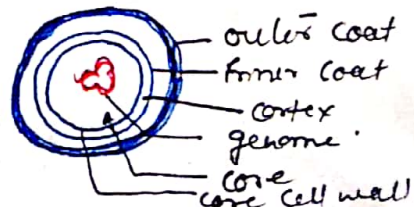 outer coat
Inner coat
cortex
genome.
core
core cell wall